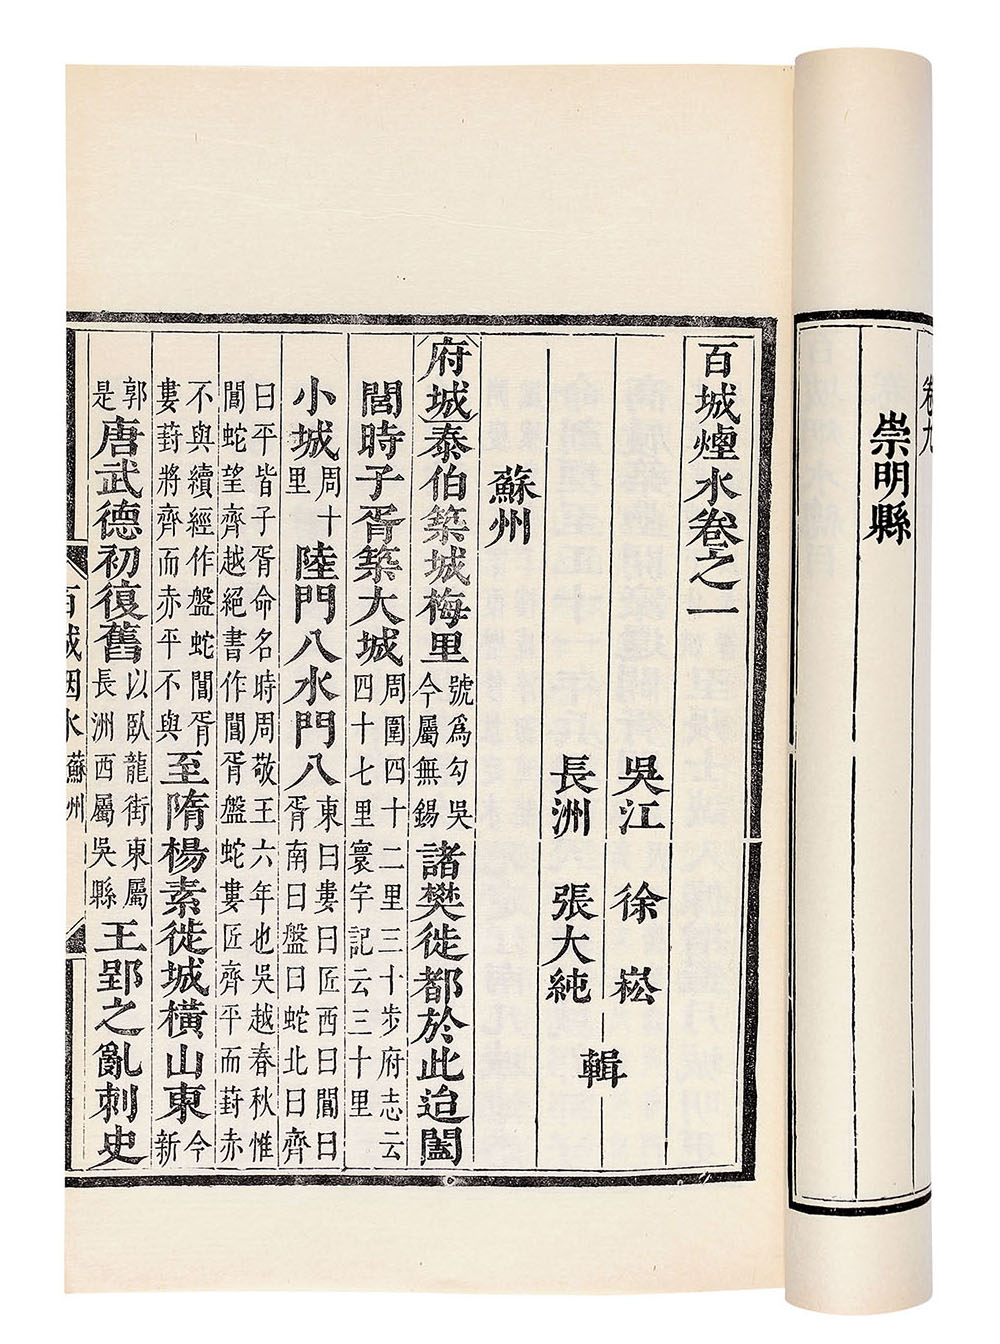 卷九
崇明縣
百城煙水卷之一
吳江 徐崧
長洲 張大純
輯
蘇州
府城泰伯築城梅里號爲勾吳今屬無錫諸樊徙都於此迨闔
閭時子胥築大城周圍四十二里三十步府志云四十七里寰宇記云三十里
小城周十里陸門八水門八東曰婁曰匠西曰閶曰胥南曰盤曰蛇北曰齊
曰平皆子胥命名時周敬王六年也吳越春秋惟閶蛇望齊越絕書作閶胥盤蛇婁匠齊平而葑赤
不與續經作盤蛇閶胥婁葑將齊而赤平不與至隋楊素徙城橫山東今新
郭是唐武德初復舊以臥龍街東屬長洲西屬吳縣王郢之亂刺史
百城烟水 蘇州